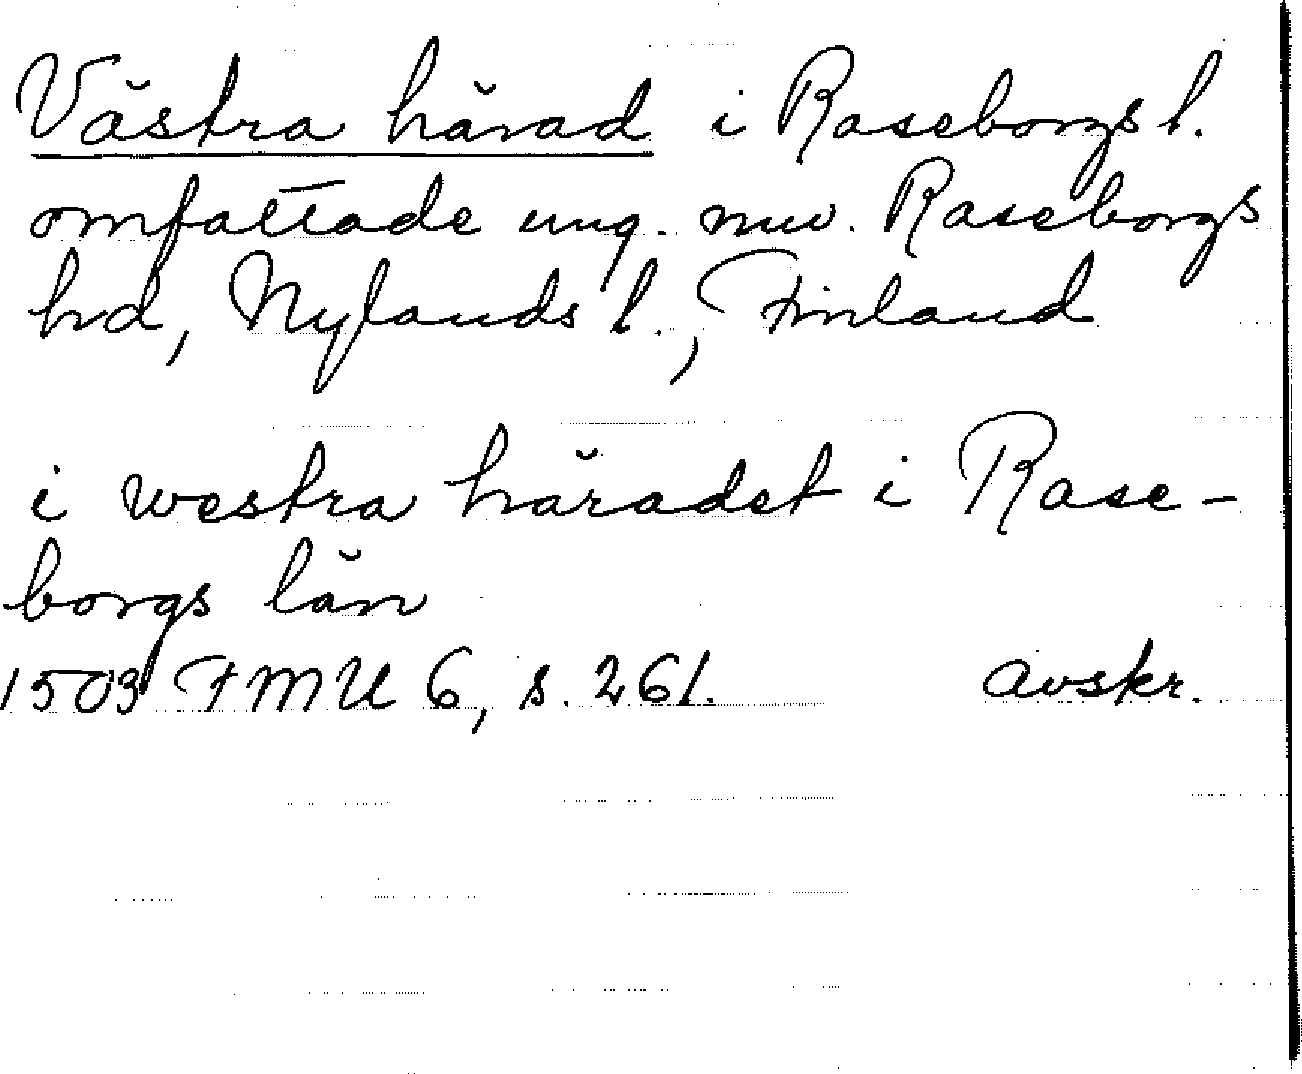 Västra härad i Raseborgs l.
omfattade ung. nuv. Raseborgs
hd, Nylands l., Finland
i westra häradet i Rase-
borgs län
1503 FMU 6, s. 261. avskr.